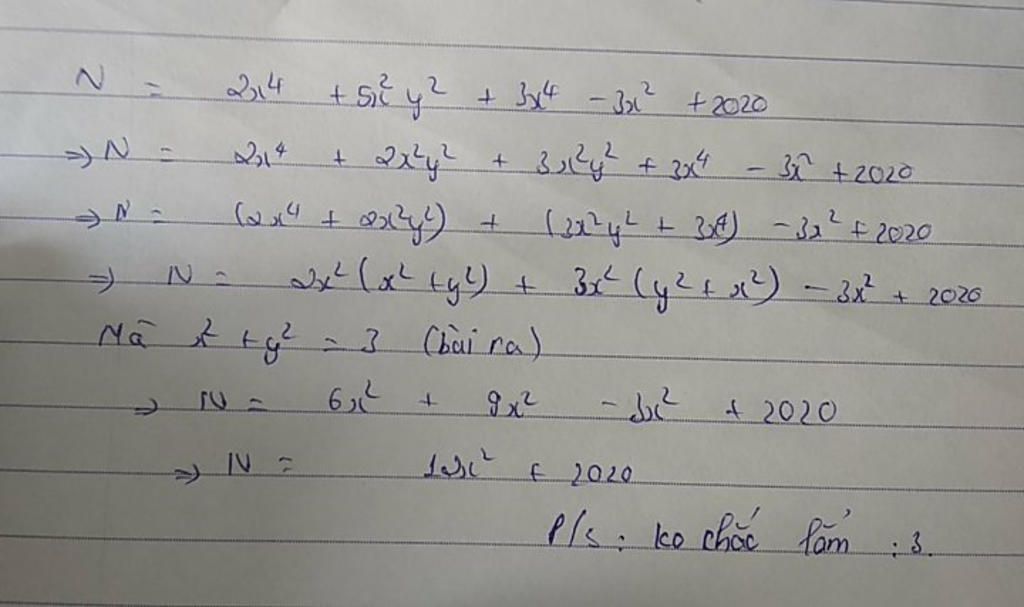 N = 2x⁴ + 5x²y² + 3x⁴ - 3x² + 2020
⇒ N = 2x⁴ + 2x²y² + 3x²y² + 3x⁴ - 3x² + 2020
⇒ N = (2x⁴ + 2x²y²) + (3x²y² + 3x⁴) - 3x² + 2020
⇒ N = 2x² (x² + y²) + 3x² (y² + x²) - 3x² + 2020
Mà x² + y² = 3 (bài ra)
⇒ N = 6x² + 9x² - 3x² + 2020
⇒ N = 12x² + 2020
P/s : ko chắc lắm :3.